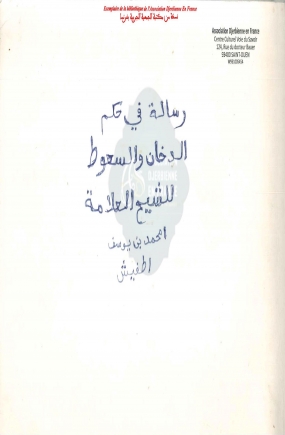 Exemplaire de la bibliothèque de l'Association Djerbienne En France
نسخة من مكتبة الجمعية الجربية بفرنسا
Association Djerbienne en France
Centre Culturel Voie du Savoir
رسالة في حكم
الدخان والسعوط
للشيخ العلامة
امحمد بن يوسف
اطفيش